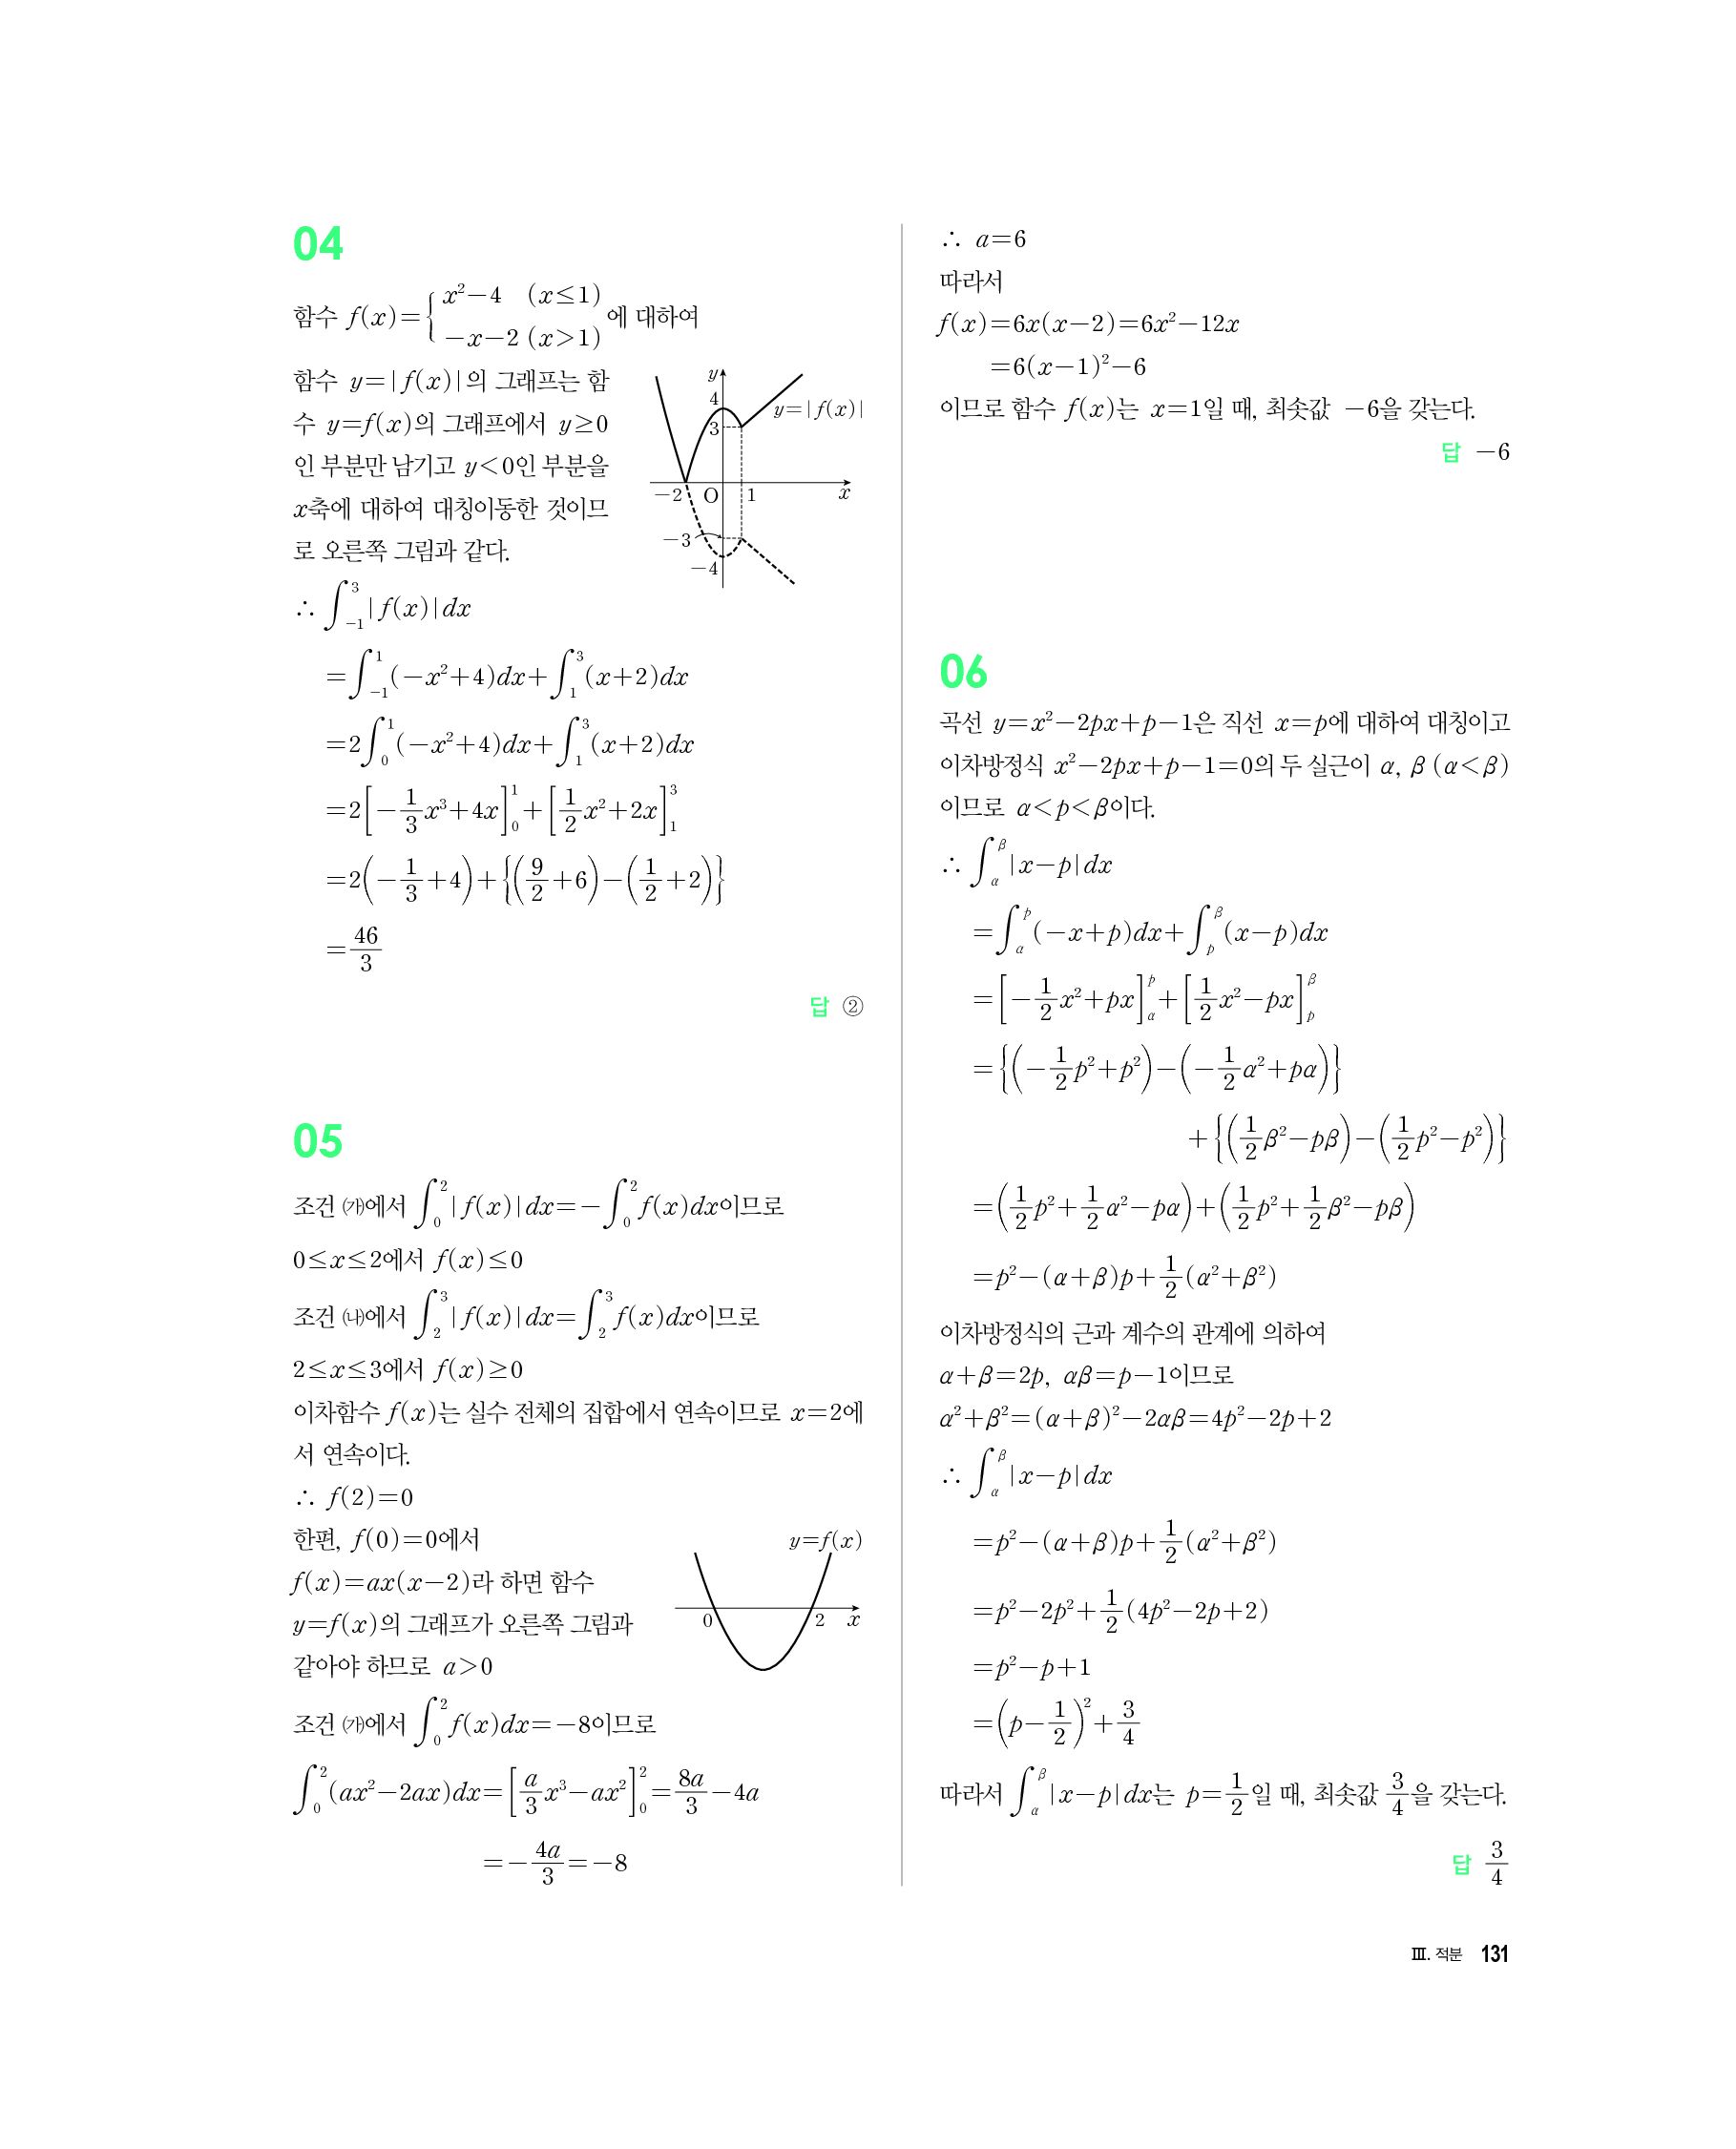 04
함수 f(x)={ x²-4 (x≤1)
-x-2 (x>1) 에 대하여
함수 y=|f(x)|의 그래프는 함
수 y=f(x)의 그래프에서 y≥0
인 부분만 남기고 y<0인 부분을
x축에 대하여 대칭이동한 것이므
로 오른쪽 그림과 같다.
y
4
3
y=|f(x)|
-2 O 1 x
-3
-4
∴ ∫_{-1}^{3}|f(x)|dx
=∫_{-1}^{1}(-x²+4)dx+∫_{1}^{3}(x+2)dx
=2∫_{0}^{1}(-x²+4)dx+∫_{1}^{3}(x+2)dx
=2[-1/3x³+4x]_{0}^{1}+[1/2x²+2x]_{1}^{3}
=2(-1/3+4)+{(9/2+6)-(1/2+2)}
=46/3
답 ②
05
조건 ㈎에서 ∫_{0}^{2}|f(x)|dx=-∫_{0}^{2}f(x)dx이므로
0≤x≤2에서 f(x)≤0
조건 ㈏에서 ∫_{2}^{3}|f(x)|dx=∫_{2}^{3}f(x)dx이므로
2≤x≤3에서 f(x)≥0
이차함수 f(x)는 실수 전체의 집합에서 연속이므로 x=2에
서 연속이다.
∴ f(2)=0
한편, f(0)=0에서
f(x)=ax(x-2)라 하면 함수
y=f(x)의 그래프가 오른쪽 그림과
같아야 하므로 a>0
y=f(x)
0 2 x
조건 ㈎에서 ∫_{0}^{2}f(x)dx=-8이므로
∫_{0}^{2}(ax²-2ax)dx=[a/3x³-ax²]_{0}^{2}=8a/3-4a
=-4a/3=-8
∴ a=6
따라서
f(x)=6x(x-2)=6x²-12x
=6(x-1)²-6
이므로 함수 f(x)는 x=1일 때, 최솟값 -6을 갖는다.
답 -6
06
곡선 y=x²-2px+p-1은 직선 x=p에 대하여 대칭이고
이차방정식 x²-2px+p-1=0의 두 실근이 α, β (α<β)
이므로 α<p<β이다.
∴ ∫_{α}^{β}|x-p|dx
=∫_{α}^{p}(-x+p)dx+∫_{p}^{β}(x-p)dx
=[-1/2x²+px]_{α}^{p}+[1/2x²-px]_{p}^{β}
={(-1/2p²+p²)-(-1/2α²+pα)}
+{(1/2β²-pβ)-(1/2p²-p²)}
=(1/2p²+1/2α²-pα)+(1/2p²+1/2β²-pβ)
=p²-(α+β)p+1/2(α²+β²)
이차방정식의 근과 계수의 관계에 의하여
α+β=2p, αβ=p-1이므로
α²+β²=(α+β)²-2αβ=4p²-2p+2
∴ ∫_{α}^{β}|x-p|dx
=p²-(α+β)p+1/2(α²+β²)
=p²-2p²+1/2(4p²-2p+2)
=p²-p+1
=(p-1/2)²+3/4
따라서 ∫_{α}^{β}|x-p|dx는 p=1/2일 때, 최솟값 3/4을 갖는다.
답 3/4
Ⅲ. 적분 131